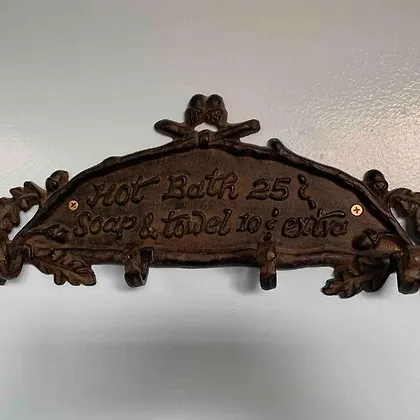 Hot Bath 25¢
Soap & towel 10¢ extra